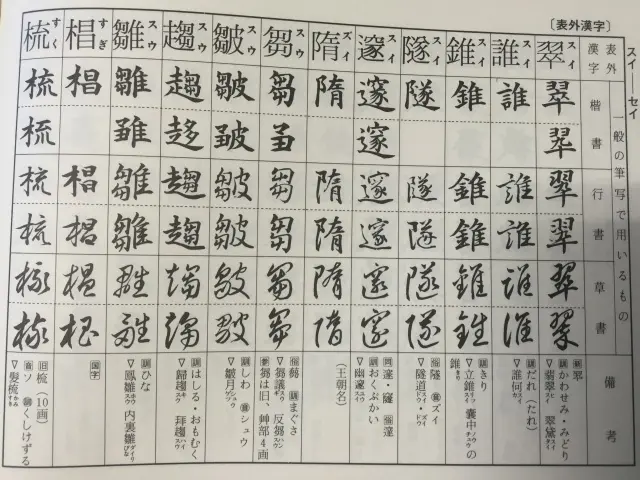 〔表外漢字〕
スイ―セイ
表外漢字
一般の筆写で用いるもの
楷書
行書
草書
備考
翠 スイ
翠
翠
翠
翠
翠
翠
訓かわせみ・みどり
▽翡翠スイ 翠黛スイ
誰 スイ
誰
誰
誰
誰
誰
訓だれ（たれ）
▽誰何スイカ
錐 スイ
錐
錐
錐
錐
錐
訓きり
▽立錐スイ 嚢中ノウチュウの
錐きり
隧 スイ
隧
隧
隧
隧
隧
隧 音ズイ
▽隧道スイ・ズイドウ
邃 スイ
邃
邃
邃
邃
邃
邃
訓おくぶかい
▽幽邃スイ
隋 ズイ
隋
隋
隋
隋
隋
（王朝名）
芻 スウ
芻
芻
芻
芻
芻
芻
訓まぐさ
▽芻議スウギ 反芻スウ
芻は旧艸部4画
皺 スウ
皺
皺
皺
皺
皺
皺
訓しわ 音シュウ
▽皺月シュウ
趨 スウ
趨
趨
趨
趨
趨
趨
訓はしる・おもむく
▽帰趨キスウ 拝趨ハイスウ
雛 スウ
雛
雛
雛
雛
雛
雛
訓ひな
▽鳳雛スウ 内裏雛ダイリ
椙 すぎ
椙
椙
椙
椙
椙
国字
梳 すく
梳
梳
梳
梳
梳
梳
旧梳（10画）
音ソ 訓くしけずる
▽髪梳かみすき